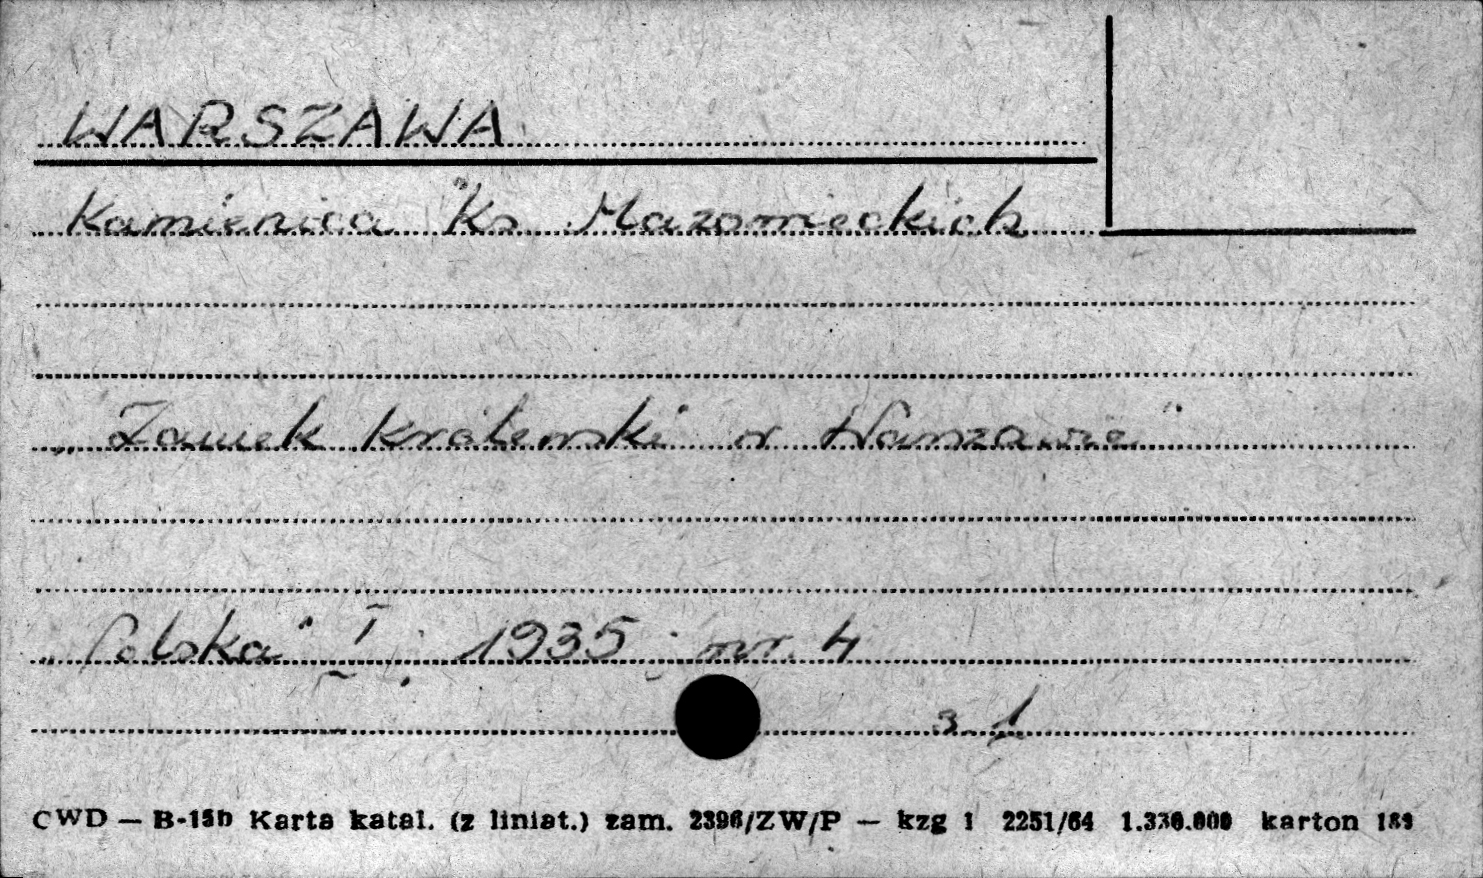 WARSZAWA
Kamienica Ks. Mazowieckich
„Zamek Królewski w Warszawie"
„Polska" I. 1935 nr. 4
s. 1
CWD — B-15b Karta katal. (z liniat.) zam. 2396/ZW/P — kzg 1 2251/64 1.330.000 karton